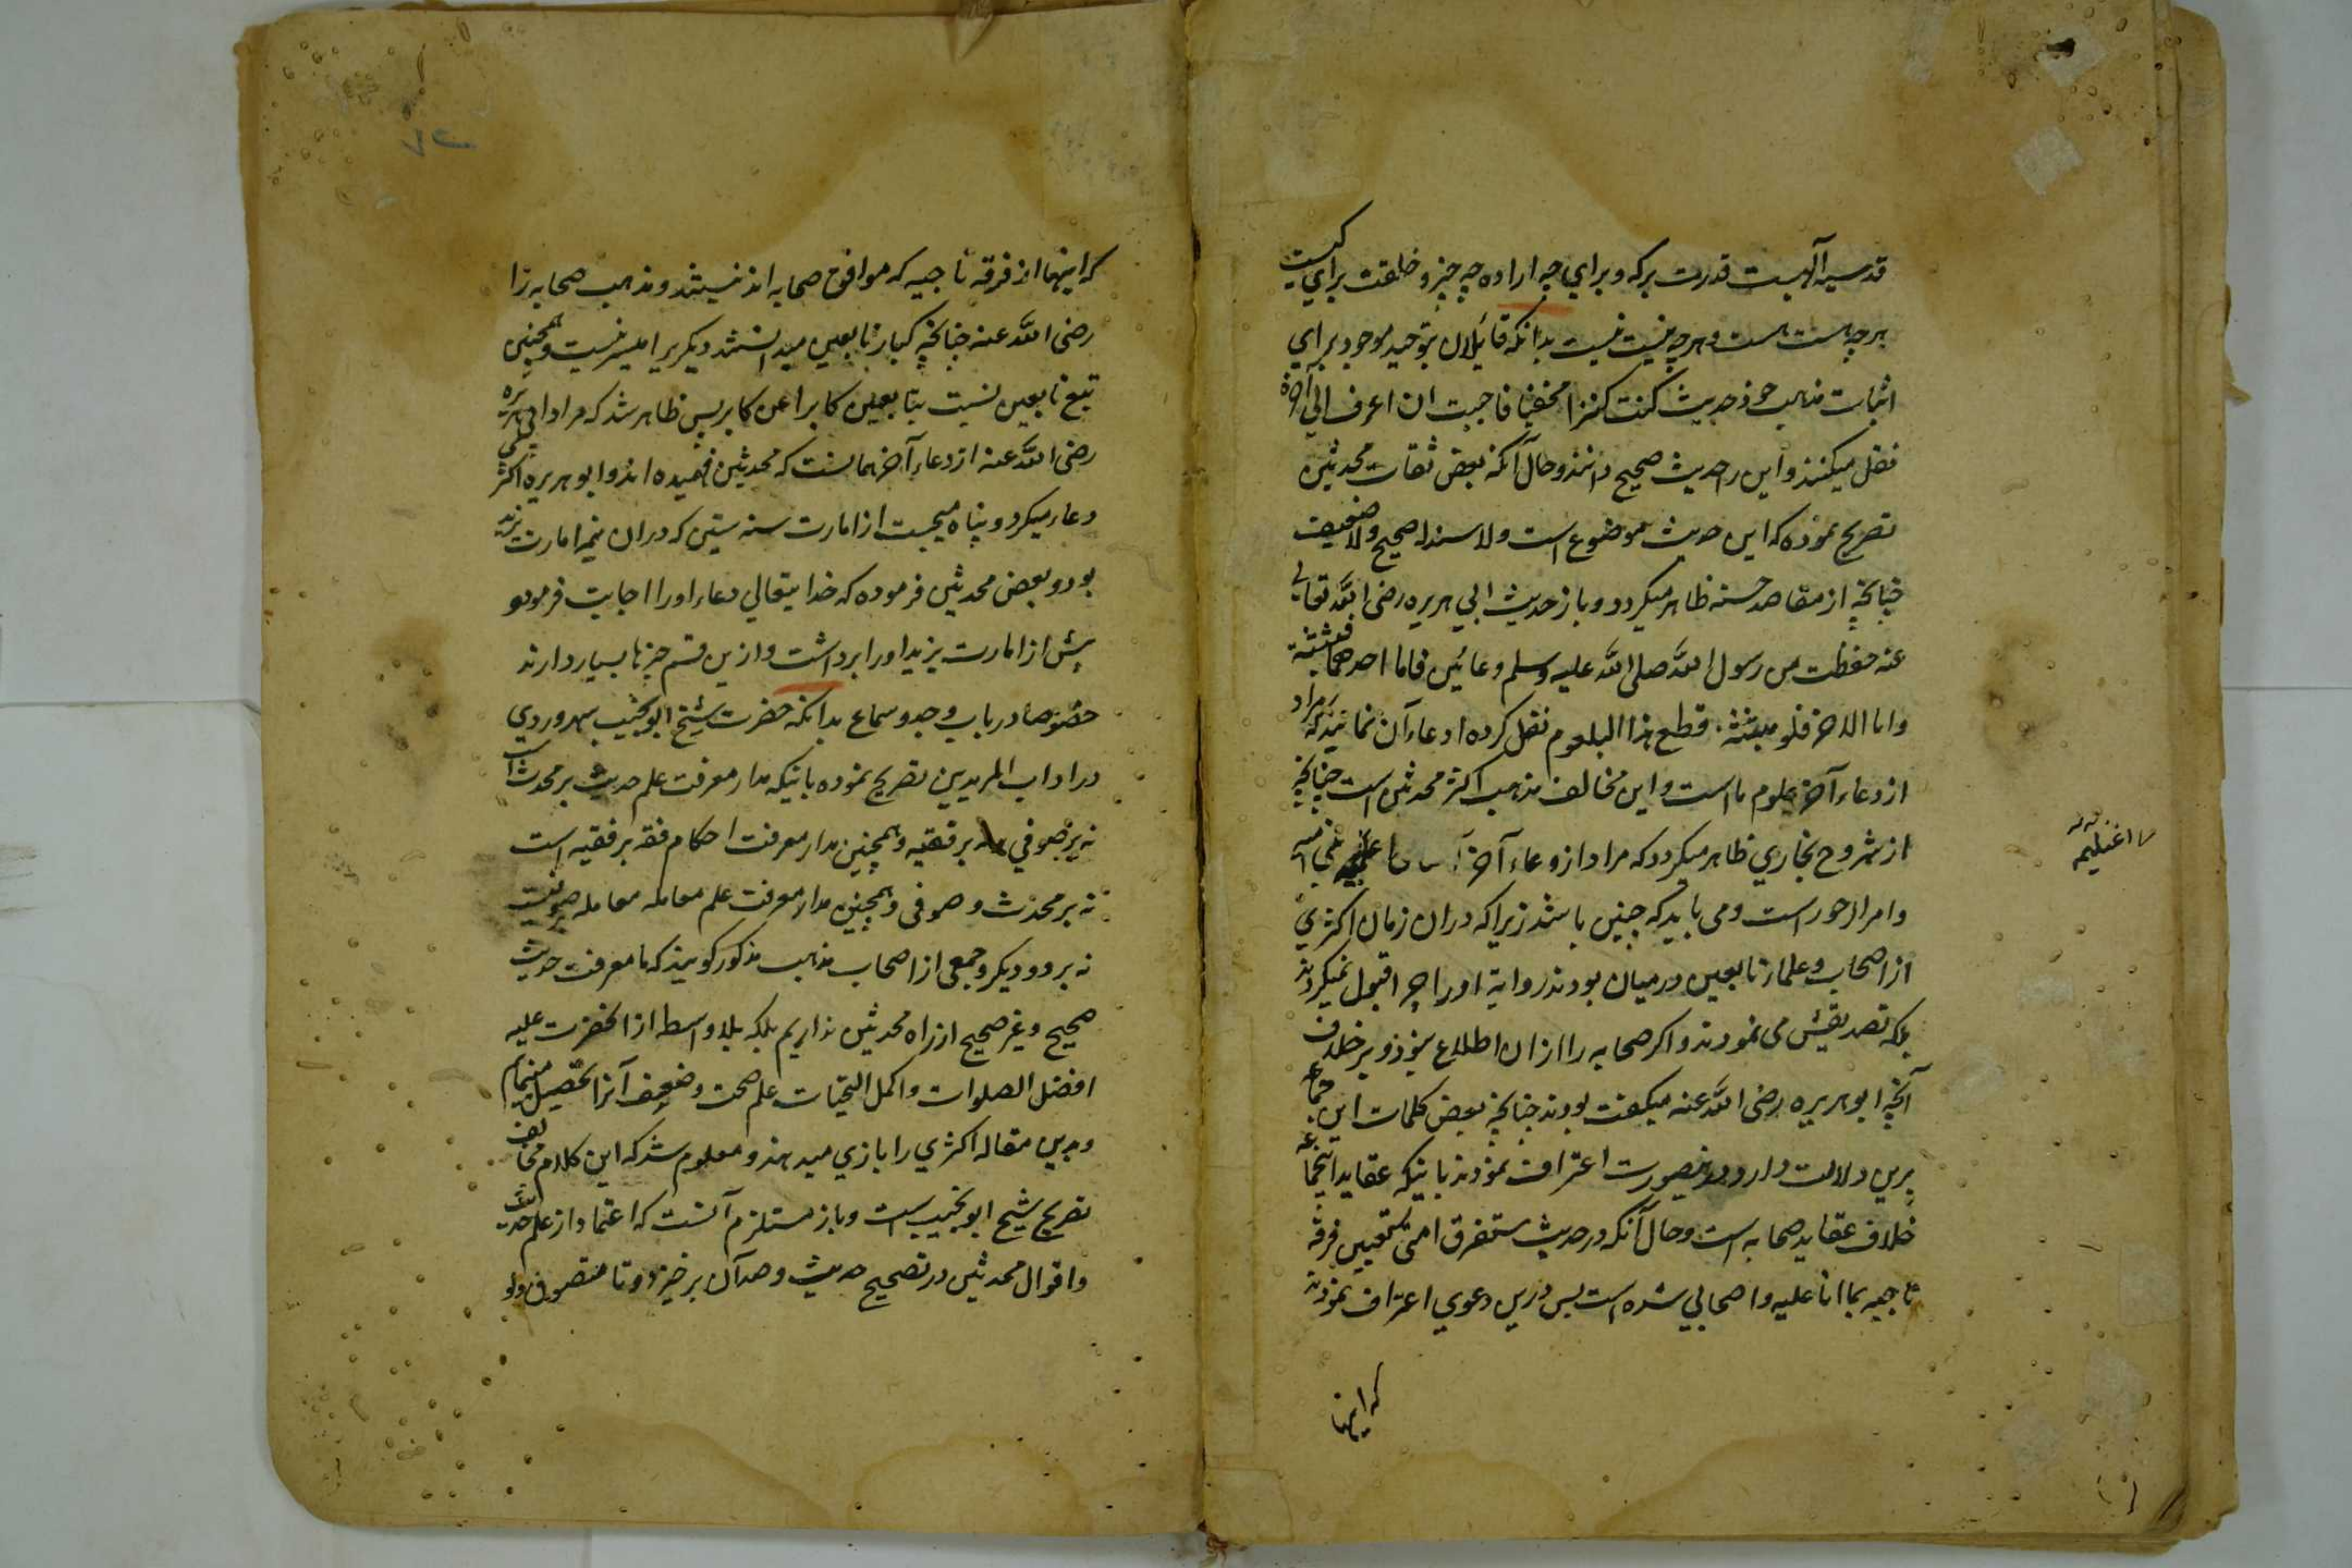 قدسیه آلهیت قدرت برکه و برای چه اراده چه چیز و خلقت برای کیست
هرچه هست هست و هرچه نیست نیست بدانکه قائلان بتوحید موجود برای
اثبات مذهب خود حدیث کنت کنزا مخفیا فاحببت ان اعرف الی آخره
نقل میکنند و این را حدیث صحیح دانند و حال آنکه بعض ثقات محدثین
تصریح نموده که این حدیث موضوع است ولا سندا صحیح ولا ضعیف
چنانچه از مقاصد حسنه ظاهر میگردد و باز حدیث ابی هریره رضی الله تعالی
عنه حفظت من رسول الله صلی الله علیه وسلم وعائین فاما احدهما فبثثته
واما الاخر فلو مبثثه قطع هذا البلعوم نقل کرده ادعاء آن نمایند که مراد
از وعاء آخر علوم ما است و این مخالف مذهب اکثر محدثین است چنانچه
از شروح بخاری ظاهر میکردد که مراد از وعاء آخر بنی امیه
وامراء جور است و می باید که چنین باشد زیرا که دران زمان اکثری
از اصحاب و علماء تابعین درمیان بودند روایة او را چرا قبول نمیکردند
بلکه تصدیقش می نمودند و اکر صحابه را ازان اطلاع نبود و بر خلاف
آنچه ابوهریره رضی الله عنه میکفت بودند چنانچه بعض کلمات این جماعه
برین دلالت دارد درینصورت اعتراف نمودند باینکه عقاید اینجماعه
خلاف عقاید صحابه است و حال آنکه در حدیث ستفرق امتی تعیین فرقه
ناجیه بما انا علیه واصحابی شده است پس درین دعوی اعتراف نمودند
که اینها
که اینها از فرقه ناجیه که موافق صحابه اند نیستند و مذهب صحابه را
رضی الله عنه چنانچه کبار تابعین میدانستند دیکریرا میسر نیست و همچنین
تبع تابعین نسبت بتابعین کابرا عن کابر پس ظاهر شد که مراد ابی هریره
رضی الله عنه از وعاء آخر همانست که محدثین فهمیده اند و ابو هریره اکثر
دعاء میکرد و پناه میجست از امارت سنه ستین که دران نیمه امارت یزید
بود و بعض محدثین فرموده که خدایتعالی دعاء او را اجابت فرمود و
پیش از امارت یزید او را برداشت و ازین قسم چیزها بسیار دارند
خصوصا در باب وجد و سماع بدانکه حضرت شیخ ابو نجیب سهروردی
در اداب المریدین تصریح نموده باینکه مدار معرفت علم حدیث بر محدث است
نه بر صوفی نه بر فقیه و همچنین مدار معرفت احکام فقه بر فقیه است
نه بر محدث و صوفی و همچنین مدار معرفت علم معامله معامله بر صوفیست
نه بر دو دیکر و جمعی از اصحاب مذهب مذکور کویند که ما معرفت حدیث
صحیح و غیر صحیح از راه محدثین نداریم بلکه بلا واسطه از آنحضرت علیه
افضل الصلوات و اکمل التحیات علم صحت و ضعف آنرا تحصیل مینمایم
و بدین مقاله اکثری را بازی میدهند و معلوم شد که این کلام مخالف
تصریح شیخ ابو نجیب است و باز مستلزم آنست که اعتماد از علم حدیث
و اقوال محدثین در تصحیح حدیث و ضد آن برخیزد و تا متصوف ولو